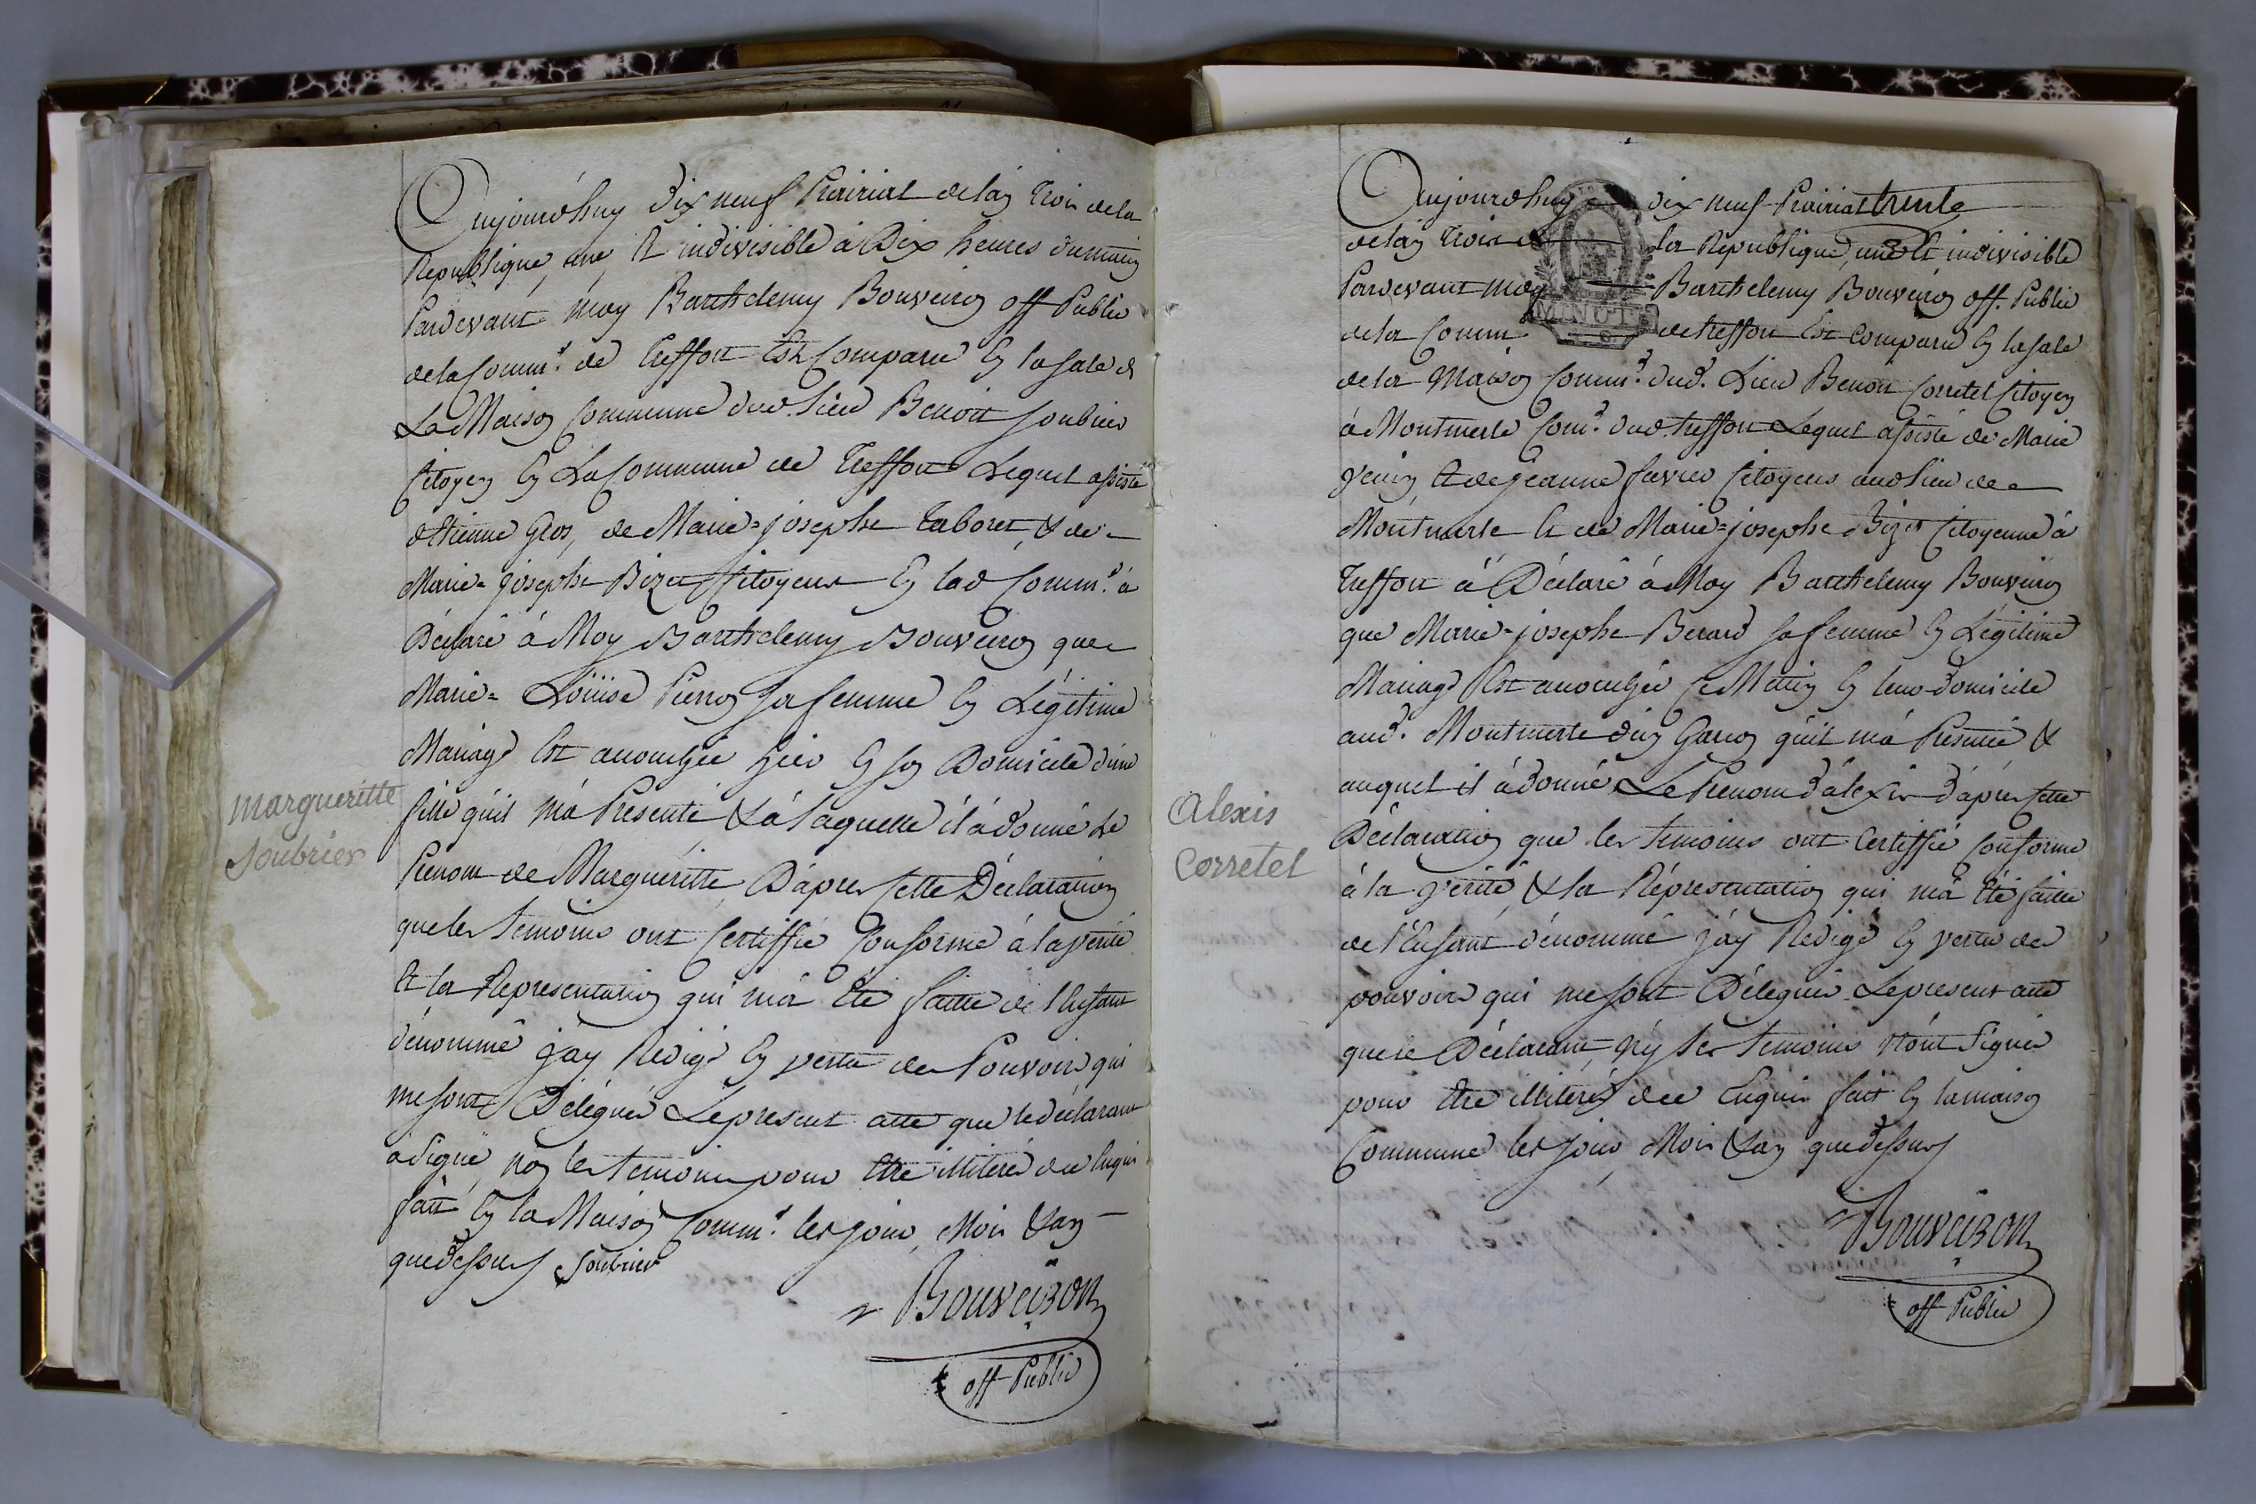 Aujourdhuy Dix neuf Prairial de lan trois de la
Republique, une, & indivisible à Dix heures dumatin
Pardevant moy Barthelemy Bouveiron off Public
de la Comm.e de Treffort Est Comparu En la sale de
La Maison Commune dud. Lieu Benoit Soubrier
Citoyen En La Commune de Treffort Lequel assisté
d'Etienne Gros, de Marie=josephe Taboret, & de
Marie=josephe Bizet Citoyens En lad Comm.e à
Déclaré à Moy Barthelemy Bouveiron que
Marie=Loüise Pierron sa femme En Légitime
Mariage Est accouchée hier En son Domicile d'une
fille qu'il m'a Présenté & à laquelle il à donné Le
Prenom de Margueritte D'apres cette Déclaration
que les temoins ont Certiffié Conforme à la verité
Et la Representation qui m'a Eté faitte de l'Enfant
dénommé j'ay Redigé En vertu des Pouvoirs qui
me sont Délégués Le present acte que le déclarant
à signé, non les temoins pour Etre illiteré de ce Enquis
fait En la Maison Comm.e les jour, Mois & an
que dessus Soubrier
Bouveiron
off Public
margueritte
Soubrier
Aujourdhuy dix neuf Prairial trente
de lan trois de la Republique, une & indivisible
Pardevant moy Barthelemy Bouveiron off. Public
MINUTE
de la Comm de treffort Est Comparu En la sale
de la Maison Comm.e dud. Lieu Benoit Corretel Citoyen
à Montmerle Com.e dud. treffort Lequel assisté de Marie
& de jeanne favier Citoyens aud Lieu de
Montmerle & de Marie=josephe Bizet Citoyenne à
Treffort à Déclaré à Moy Barthelemy Bouveiron
que Marie=josephe Berard sa femme En Légitime
Mariage Est accouchée ce Matin En leur domicile
aud. Montmerle d'un Garçon qu'il m'a Présenté &
auquel il à donné Le Prenom d'alexis d'apres cette
Déclaration que les temoins ont Certiffié Conforme
à la verité, & la Répresentation qui m'a Eté faitte
de l'Enfant dénommé j'ay Redigé En vertu des
pouvoirs qui me sont Délegués Le present acte
que le Déclarant n'y les temoins n'ont signés
pour Etre illiterés de ce Enquis fait En la maison
Commune les jour, Mois & an que dessus
Bouveiron
off Public
Alexis
Corretel